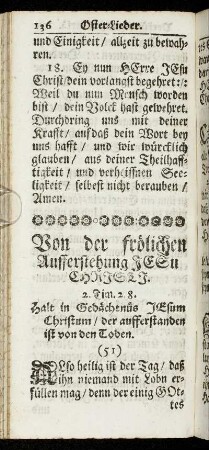 136 Oster-Lieder.
und Einigkeit / allzeit zu bewah-
ren.
18. Ey nun HErre JEsu
Christ / dein vorlangst begehret:/:
Weil du nun Mensch worden
bist / dein Volck hast gewehret.
Durchdring uns mit deiner
Krafft / auf daß dein Wort bey
uns hafft / und wir würcklich
glauben / aus deiner Theilhaff-
tigkeit / und verheissnen See-
ligkeit / selbest nicht berauben /
Amen.
Von der frölichen
Aufferstehung JESu
CHRISTJ.
2. Tim. 2. 8.
Halt in Gedächtnüs JEsum
Christum / der aufferstanden
ist von den Toden.
(51)
ALso heilig ist der Tag / daß
ihn niemand mit Lobn er-
füllen mag / denn der einig GOt-
tes